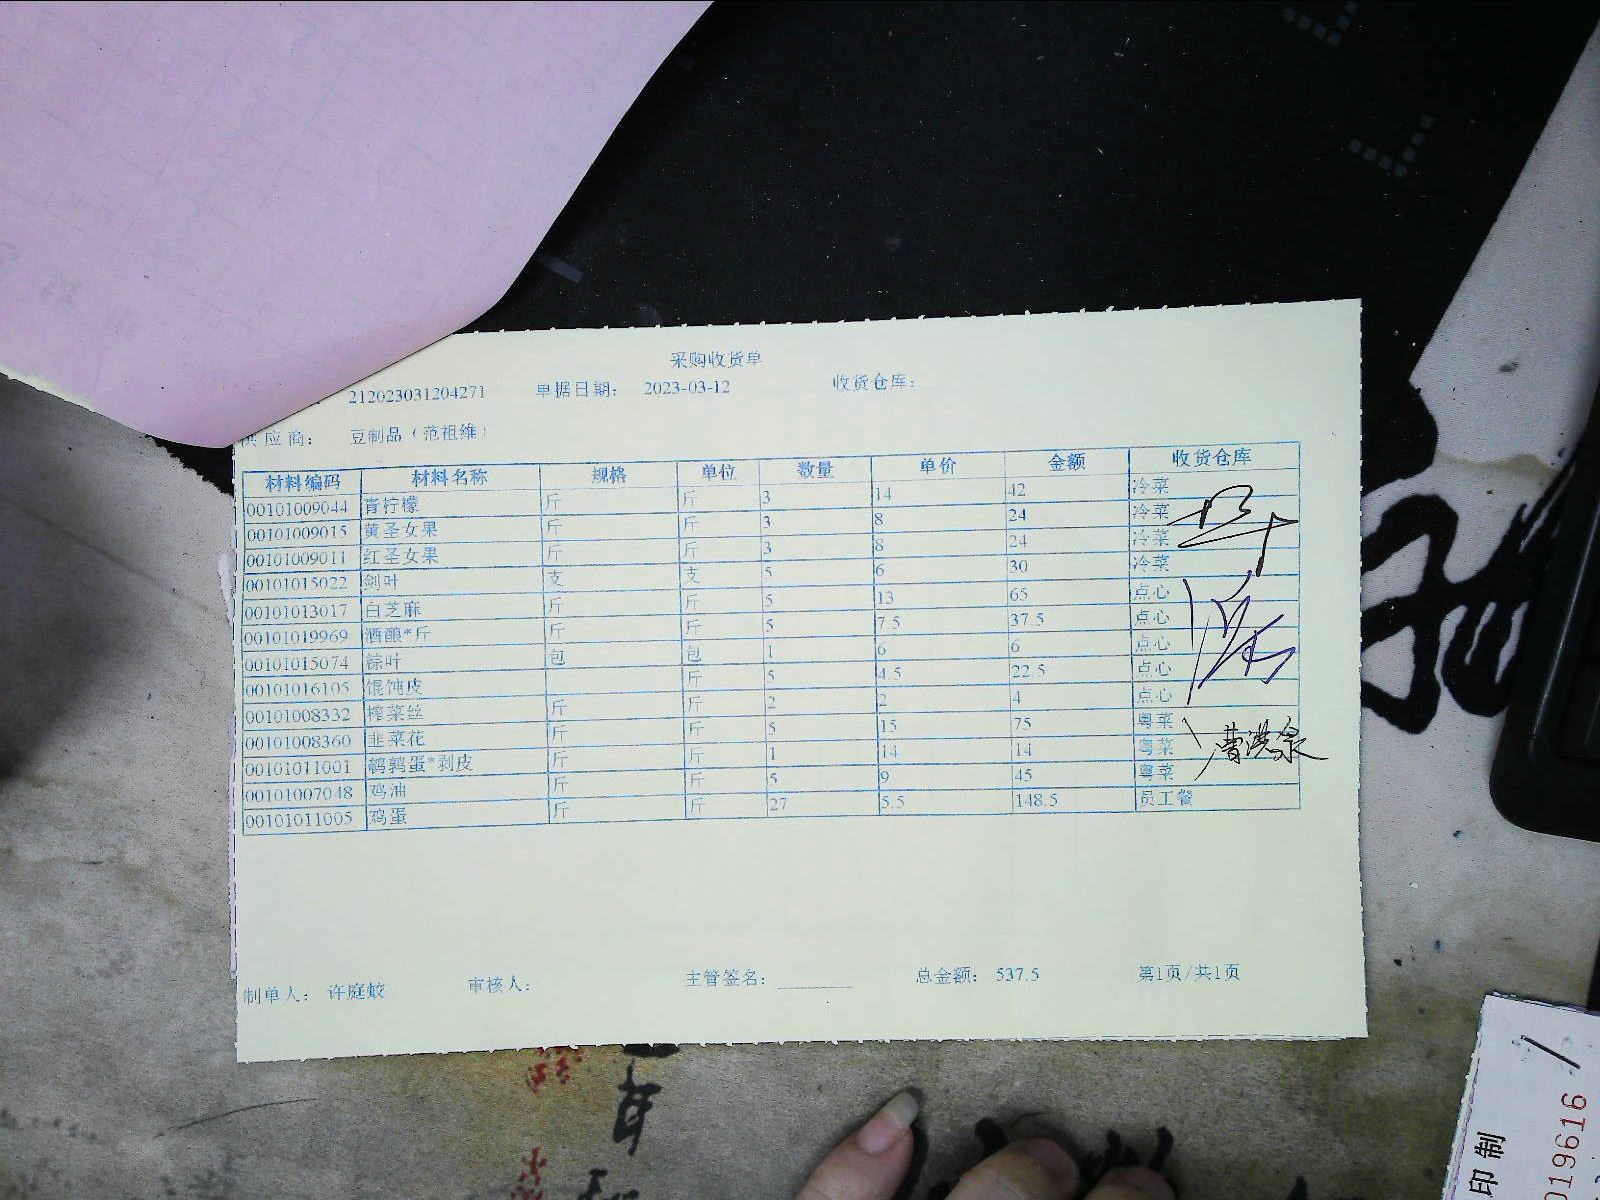 采购收货单
212023031204271 单据日期： 2023-03-12 收货仓库：
供应商： 豆制品（范祖维）
材料编码 材料名称 规格 单位 数量 单价 金额 收货仓库
00101009044 青柠檬 斤 斤 3 14 42 冷菜
00101009015 黄圣女果 斤 斤 3 8 24 冷菜
00101009011 红圣女果 斤 斤 3 8 24 冷菜
00101015022 剑叶 支 支 5 6 30 冷菜
00101013017 白芝麻 斤 斤 5 13 65 点心
00101019969 酒酿*斤 斤 斤 5 7.5 37.5 点心
00101015074 粽叶 包 包 1 6 6 点心
00101016105 馄饨皮 斤 5 4.5 22.5 点心
00101008332 榨菜丝 斤 斤 2 2 4 点心
00101008360 韭菜花 斤 斤 5 15 75 粤菜
00101011001 鹌鹑蛋*剥皮 斤 斤 1 14 14 粤菜
00101007048 鸡油 斤 斤 5 9 45 粤菜
00101011005 鸡蛋 斤 斤 27 5.5 148.5 员工餐
制单人： 许庭蛟 审核人： 主管签名： 总金额： 537.5 第1页/共1页
印制
019616